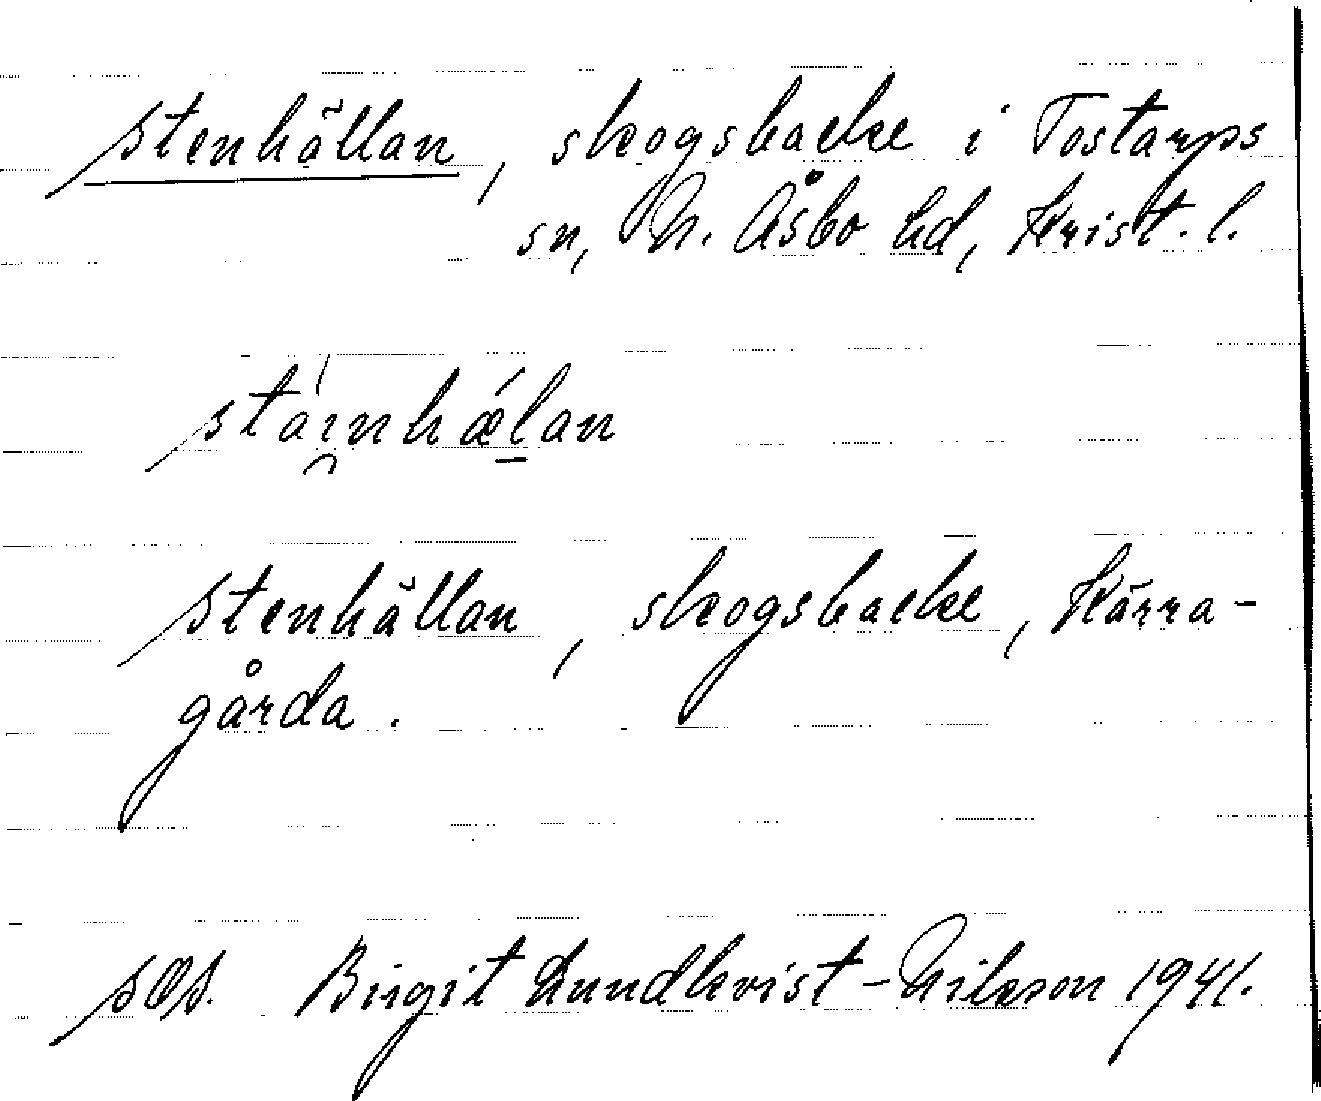 stenhällan, skogsbacke i Tostarps
sn, N. Åsbo hd, Krist. l.
stáinhǽlan
stenhällan, skogsbacke, Kärra-
gårda.
Birgit Lundkvist-Nilsson 1941.